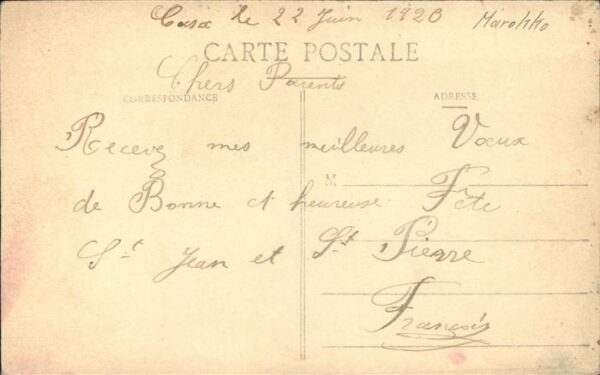 Casa le 22 Juin 1920 Marokko
CARTE POSTALE
Chers Parents
CORRESPONDANCE ADRESSE
Recevez mes meilleures Vœux
de Bonne et heureuse Fête
St Jean et St Pierre
François
M.